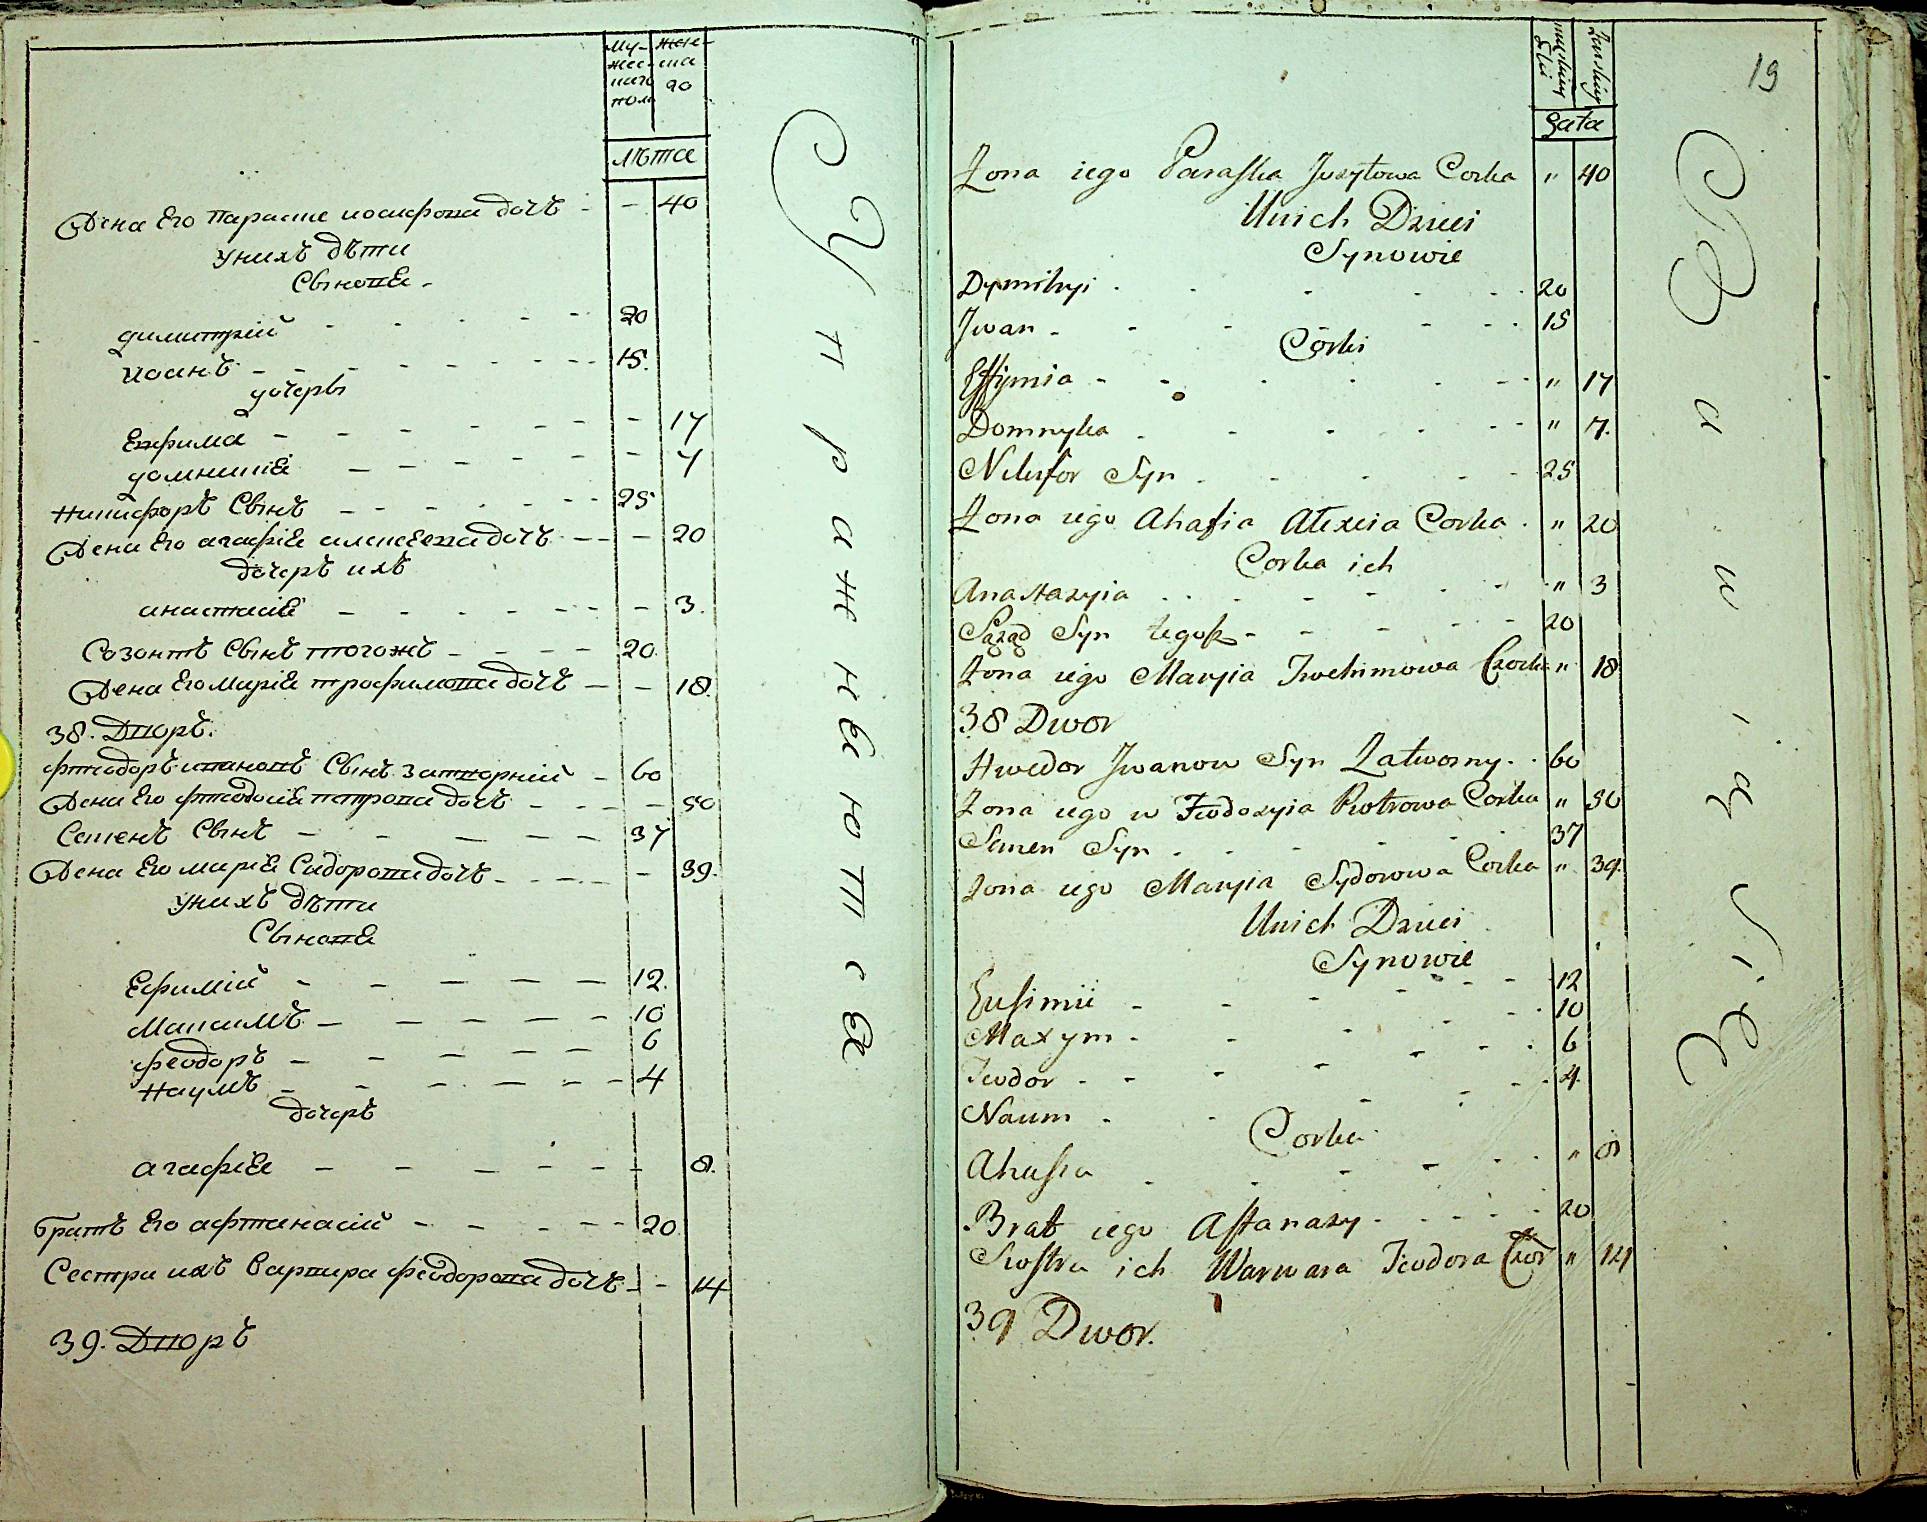 Му-
жес-
каго
пола
жен-
ска
го
лѣта
Жена Его Параске иосифова дочь - - 40
У нихъ дѣти
Сынове -
димитрий - - - - - 20
иоанъ - - - - - - 15.
дочеры
Евфима - - - - - - 17
домникiя - - - - - - 7
Никифоръ Сынъ - - - - - 25
Жена Его агафiя алексеева дочь - - - 20
дочеръ ихъ
анастасiя - - - - - - - 3.
Созонтъ Сынъ тогожъ - - - - 20.
Жена Его Марiя трофимова дочь - - 18.
38. Дворъ.
Фтеодоръ ивановъ Сынъ Затворнiй - 60
Жена Его фтеодосiя петрова дочь - - - - 50
Семенъ Сынъ - - - - - 37
Жена Его марiя Сидорова дочь - - - - - 39.
У нихъ дѣти
Сынове
Ефимiй - - - - - 12.
Максимъ - - - - - 10
Феодоръ - - - - - 6
Наумъ - - - - - - 4
дочеръ
агафiя - - - - - - 8.
Братъ Его афтанасiй - - - - - 20
Сестра ихъ Варвара феодорова дочь - - 14
39. Дворъ
У п р а ж н я ю т с я
19
męskiey
płci
żenskiey
Łata
Żona iego Paraska Juzytowa Corka " 40
U nich Dzieci
Synowie
Dymitryi . - - - - 20
Jwan - - - - - - 15
Corki
Effymia - - - - - - " 17
Domnyka . - - - - - " 7.
Nikifor Syn . - - - - 25
Żona iego Ahafia Alexieia Corka . " 20
Corka ich
Anastazyia . . - - - - " 3
Sąząd Syn tegoż - - - - - 20
Żona iego Maryia Trochimowa Czorka " 18
38 Dwor
Hwedor Jwanow Syn Zatworny . . 60
Żona iego w Feodozyia Piotrowa Corka " 50
Semen Syn . - - - - 37
Żona iego Maryia Sydorowa Corka " 39.
U nich Dzieci
Synowie
Eufimii - - - - - - 12
Maxym - - - - - 10
Teodor - - - - - - 6
Naum . - - - - - 4.
Corka
Ahafia . - - - - - " 8
Brat iego Aftanazy . - - - - 20
Siostra ich Warwara Teodora Czor " 14
39 Dwor.